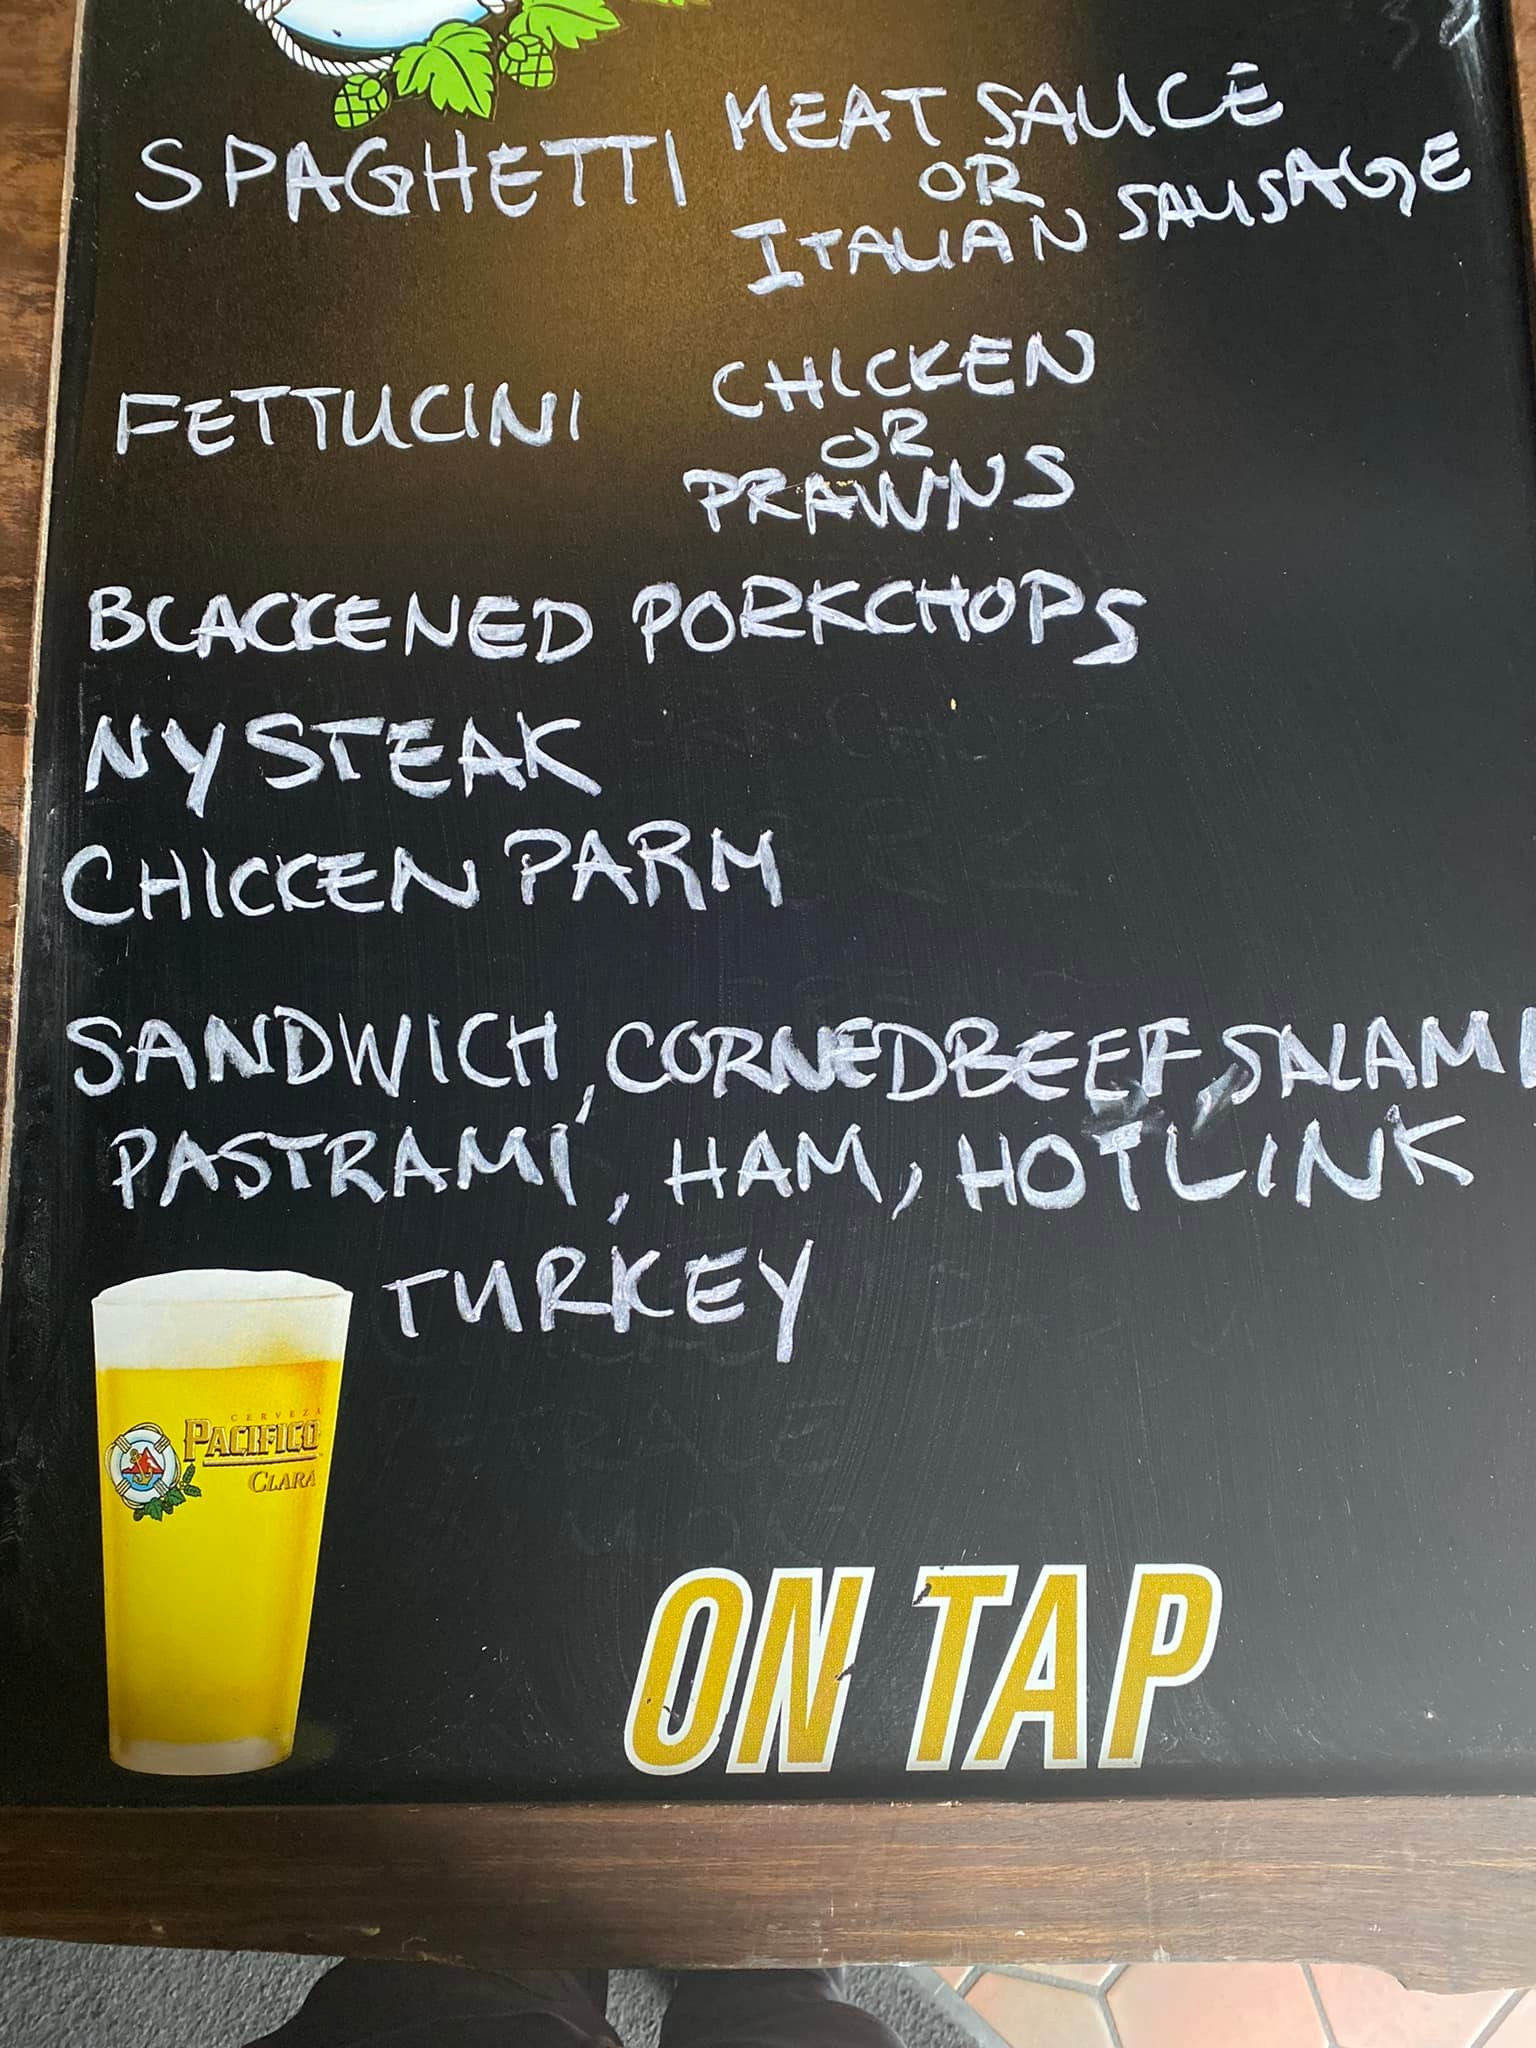 SPAGHETTI MEAT SAUCE
OR
ITALIAN SAUSAGE
FETTUCINI CHICKEN
OR
PRAWNS
BLACKENED PORKCHOPS
NY STEAK
CHICKEN PARM
SANDWICH, CORNEDBEEF, SALAMI
PASTRAMI, HAM, HOTLINK
TURKEY
CERVEZA
PACIFICO
CLARA
ON TAP